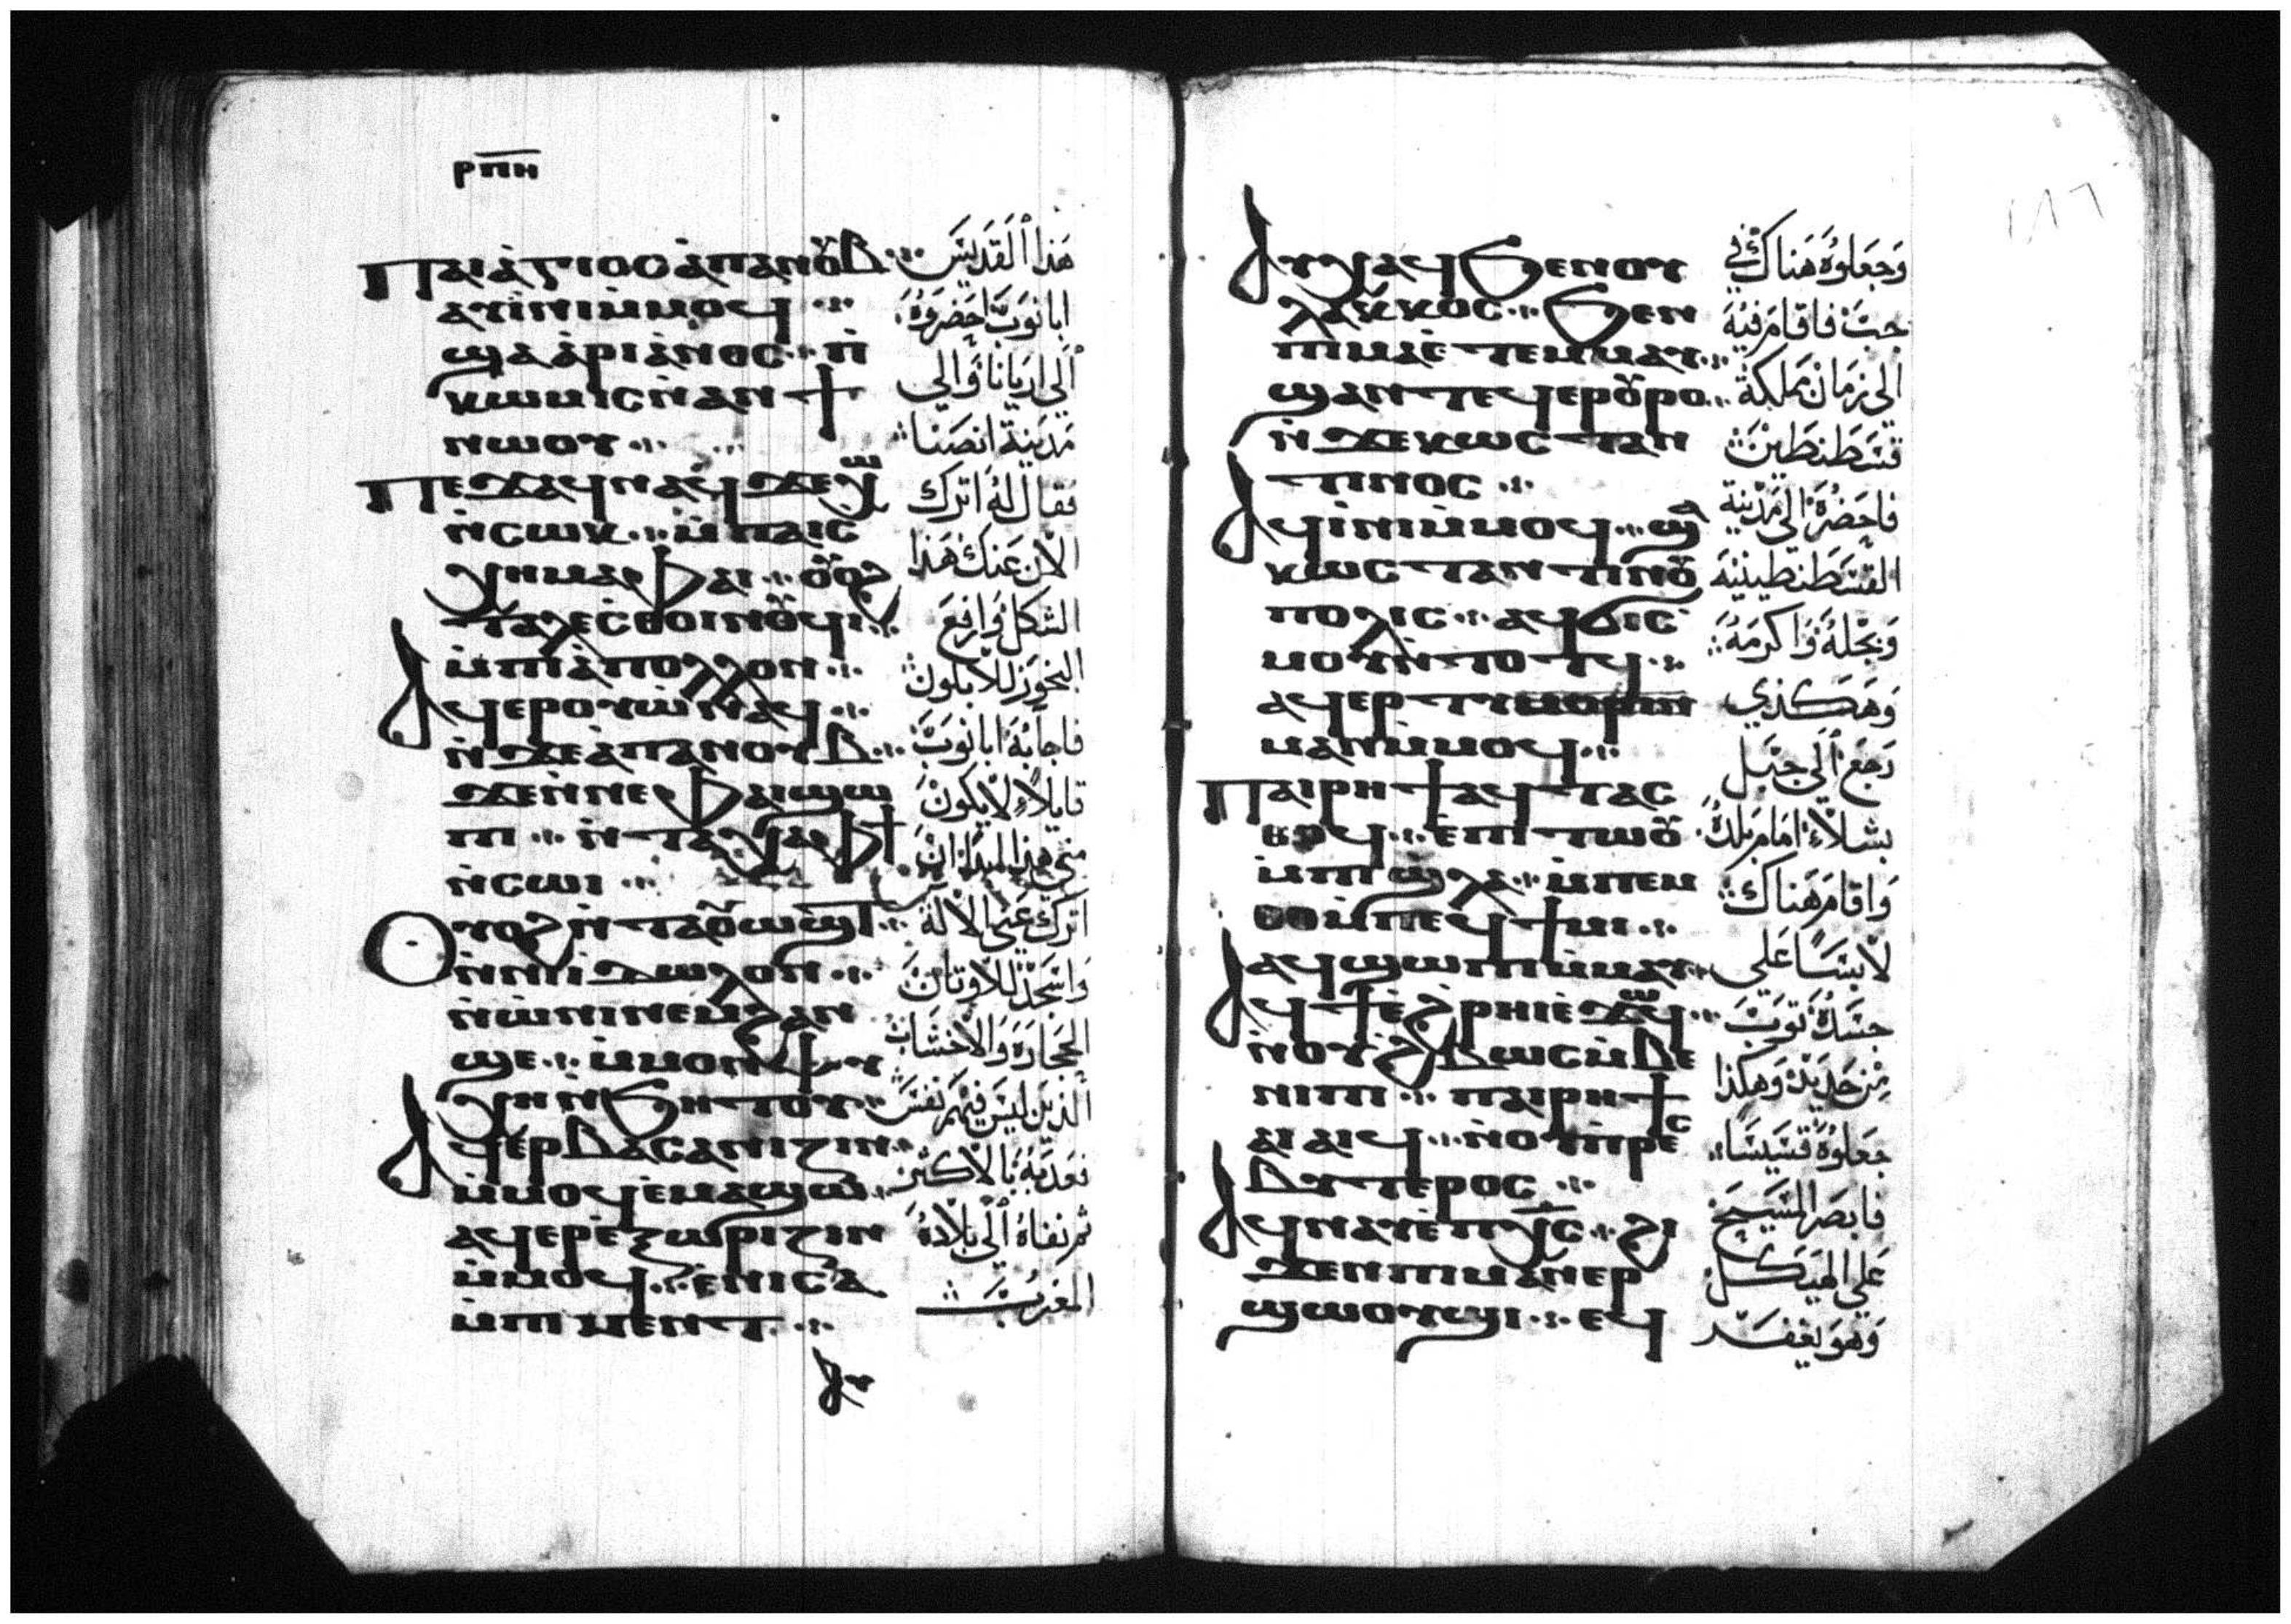 ⲣⲡⲏ
Ⲡⲁⲓⲁ̀ⲅⲓⲟⲥ ⲁ̀ⲡⲁⲛⲟⲩⲃ
ⲁⲩⲓ̀ⲛⲓ ⲙ̀ⲙⲟϥ
ϣⲁ ⲁ̀ⲣⲓⲁ̀ⲛⲟⲥ ⲡ̀
ⲕⲱⲙⲓⲥ ⲛ̀ⲁⲛϯ
ⲛⲱⲟⲩ
Ⲡⲉϫⲁϥ ⲛⲁϥ ϫⲉ ⲭⲱ
ⲛ̀ⲥⲱⲕ ⲙ̀ⲡⲁⲓⲥ
ⲭⲏⲙⲁ ⲫⲁⲓ ⲟⲩⲟϩ
ⲧⲁⲗⲉ ⲥ̀ⲑⲟⲓⲛⲟⲩϥⲓ
ⲙ̀ⲡⲓⲁ̀ⲡⲟⲗⲗⲟⲛ
Ⲁϥⲉⲣⲟⲩⲱ̀ ⲛⲁϥ
ⲛ̀ϫⲉ ⲁⲡⲁⲛⲟⲩⲃ
ϫⲉ ⲛ̀ⲛⲉ ⲫⲁⲓ ϣⲱ
ⲡⲓ ⲛ̀ⲧⲁⲭⲁ ⲫϯ
ⲛ̀ⲥⲱⲓ
Ⲟⲩⲟϩ ⲛ̀ⲧⲁⲟⲩⲱϣⲧ
ⲛ̀ⲛⲓⲓ̀ⲇⲱⲗⲟⲛ
ⲛ̀ⲱ̀ⲛⲓ ⲛⲉⲙ ϩⲁⲛ
ϣⲉ ⲙ̀ⲙⲟⲛ ⲯⲩ
ⲭⲏ ⲛ̀ϧⲏⲧⲟⲩ
Ⲁϥⲉⲣⲃⲁⲥⲁⲛⲓⲍⲓⲛ
ⲙ̀ⲙⲟϥ ⲉⲙⲁϣⲱ
ⲁϥⲉⲣⲉ̀ⲝⲱⲣⲓⲍⲓⲛ
ⲙ̀ⲙⲟϥ ⲉ̀ⲛⲓⲥⲁ
ⲙ̀ⲡⲓⲙⲉⲛⲧ
ⲁⲩ
هذا القديس
ابانوب احضروه
الي اريانا والي
مدينة انصنا
فقال له اترك
الان عنك هذا
الشكل وارفع
البخور للابلون
فاجابه ابانوب
قايلا لا يكون
مني هذا ابدا ان
اترك عني الاله
واسجد للاوثان
الحجارة والاخشاب
الذين ليس فيهم نفس
فعذبه بالاكثر
ثم نفاه الي بلاد
المغرب
١٨٦
Ⲁⲩⲭⲁϥ ϧⲉⲛ ⲟⲩ
ⲗⲁⲕⲕⲟⲥ ϧⲉⲛ
ⲡⲓⲙⲁ ⲉⲧⲉⲙⲙⲁⲩ
ϣⲁⲛⲧⲉϥⲉⲣⲟⲩⲣⲟ
ⲛ̀ϫⲉ ⲕⲱⲥⲧⲁⲛ
ⲧⲓⲛⲟⲥ
Ⲁϥⲓ̀ⲛⲓ ⲙ̀ⲙⲟϥ ϣⲁ
ⲕⲱⲥⲧⲁⲛⲧⲓⲛⲟⲩ
ⲡⲟⲗⲓⲥ ⲁϥϭⲓⲥ
ⲙⲟⲩ ⲛ̀ⲧⲟⲧϥ
ⲁϥⲉⲣⲧⲩⲙⲟⲣⲓⲛ
ⲙⲁⲛ ⲙ̀ⲙⲟϥ
Ⲡⲁⲓⲣⲏϯ ⲁϥⲧⲁⲥ
ⲑⲟϥ ⲉ̀ⲡⲓⲧⲱⲟⲩ
ⲙ̀ⲡϣⲗⲁ ⲙ̀ⲡⲉⲙ
ⲑⲟ ⲙ̀ⲡⲉϥϯⲙⲓ
ⲁϥϣⲱⲡⲓ ⲙ̀ⲙⲁⲩ
Ⲁϥϯ ⲉ̀ϩⲣⲏⲓ ⲉ̀ϫⲱϥ
ⲛ̀ⲟⲩϩ̀ⲃⲱⲥ ⲙ̀ⲃⲉ
ⲛⲓⲡⲓ ⲡⲁⲓⲣⲏϯ
ⲁⲓⲁⲓϥ ⲛ̀ⲟⲩⲡ̀ⲣⲉⲥ
ⲃⲩⲧⲉⲣⲟⲥ
Ⲁϥⲛⲁⲩ ⲉ̀ⲡⲭ̅ⲥ̅ ϩⲓ
ϫⲉⲛ ⲡⲓⲙⲁⲛⲉⲣ
ϣⲱⲟⲩϣⲓ ⲉϥ
وجعلوه هناك في
جب فاقام فيه
الي زمان مملكة
قسطنطين
فاحضره الي مدينة
القسطنطينيه
وبجله واكرمه
وهكذي
رجع الي جبل
بشلا امام بلده
واقام هناك
لابسا علي
جسده ثوب
من حديد وهكذا
جعلوه قسيسا
فابصر المسيح
علي الهيكل
وهو يغفر